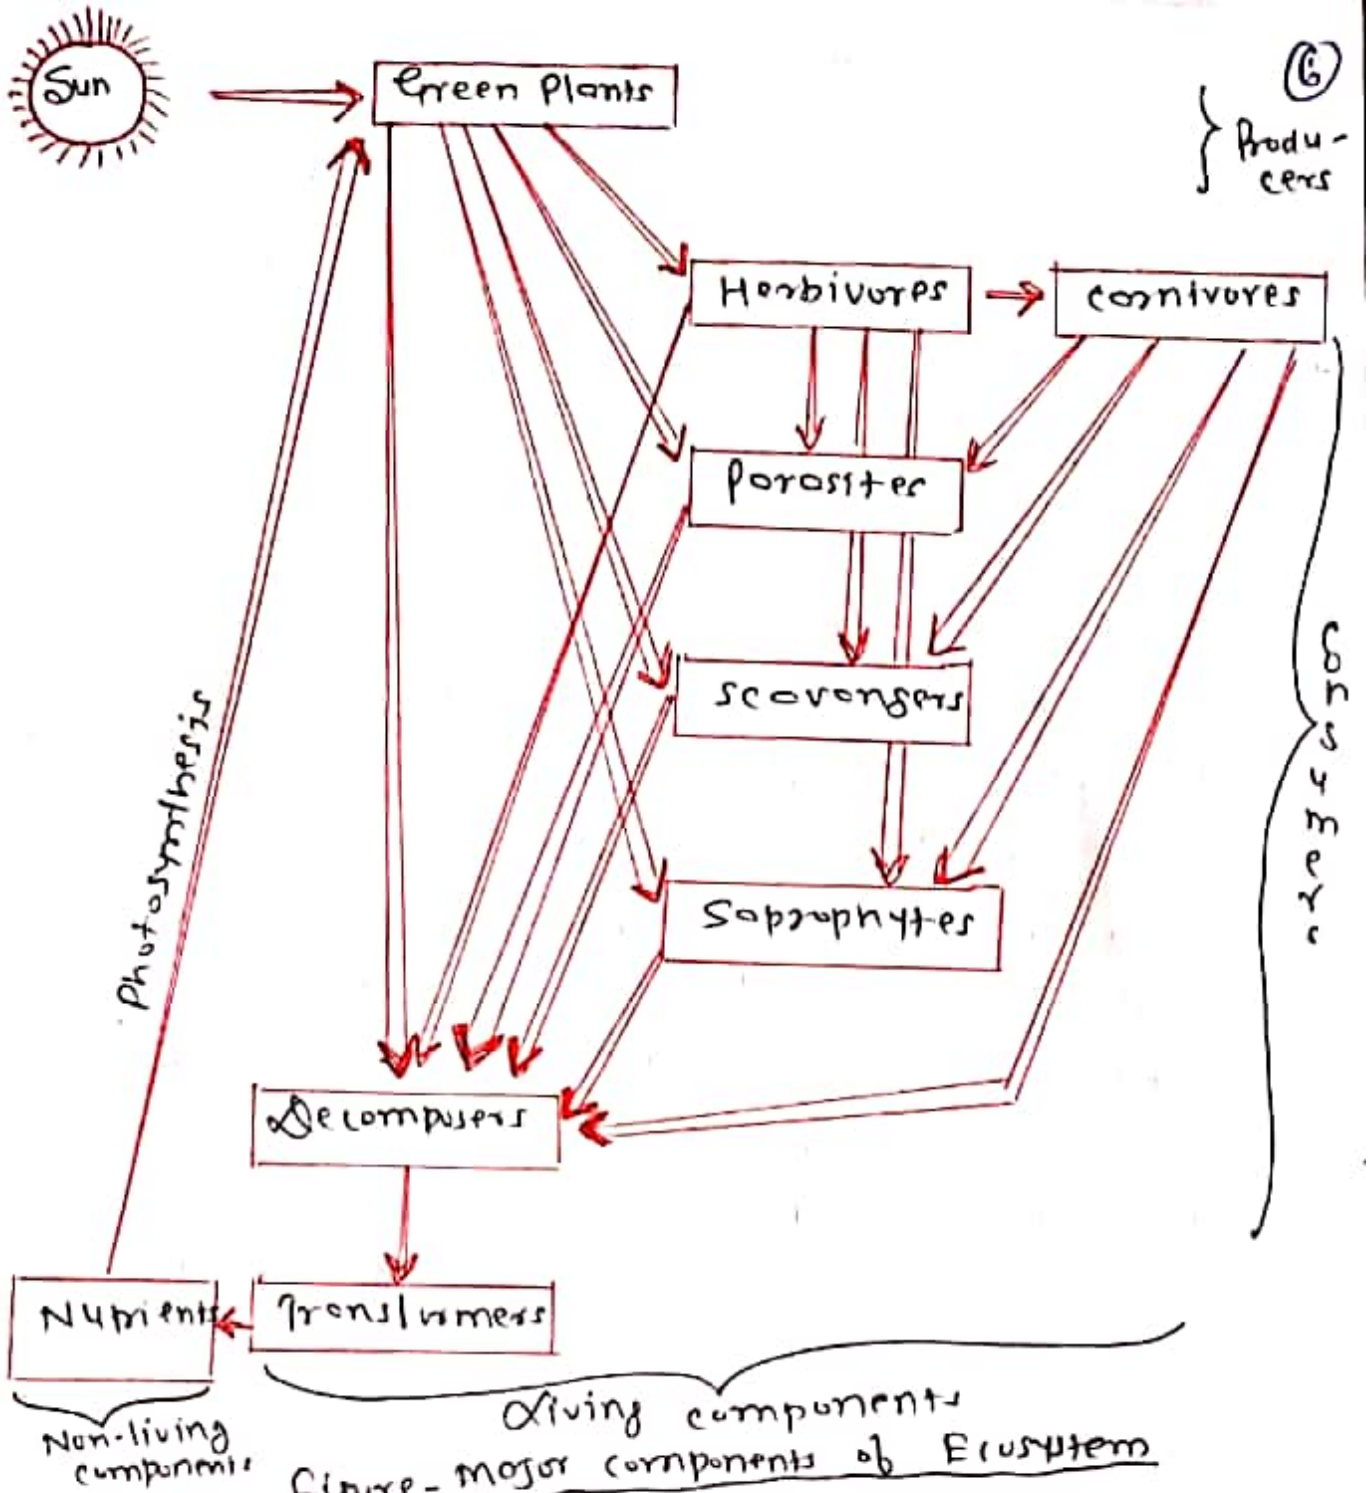 6
Sun
Green Plants
Produ-
cers
Herbivores
Carnivores
Parasites
Scavengers
Saprophytes
Consumers
Photosynthesis
Decomposers
Nutrients
Transformers
Living components
Non-living
components
Figure - Major components of Ecosystem